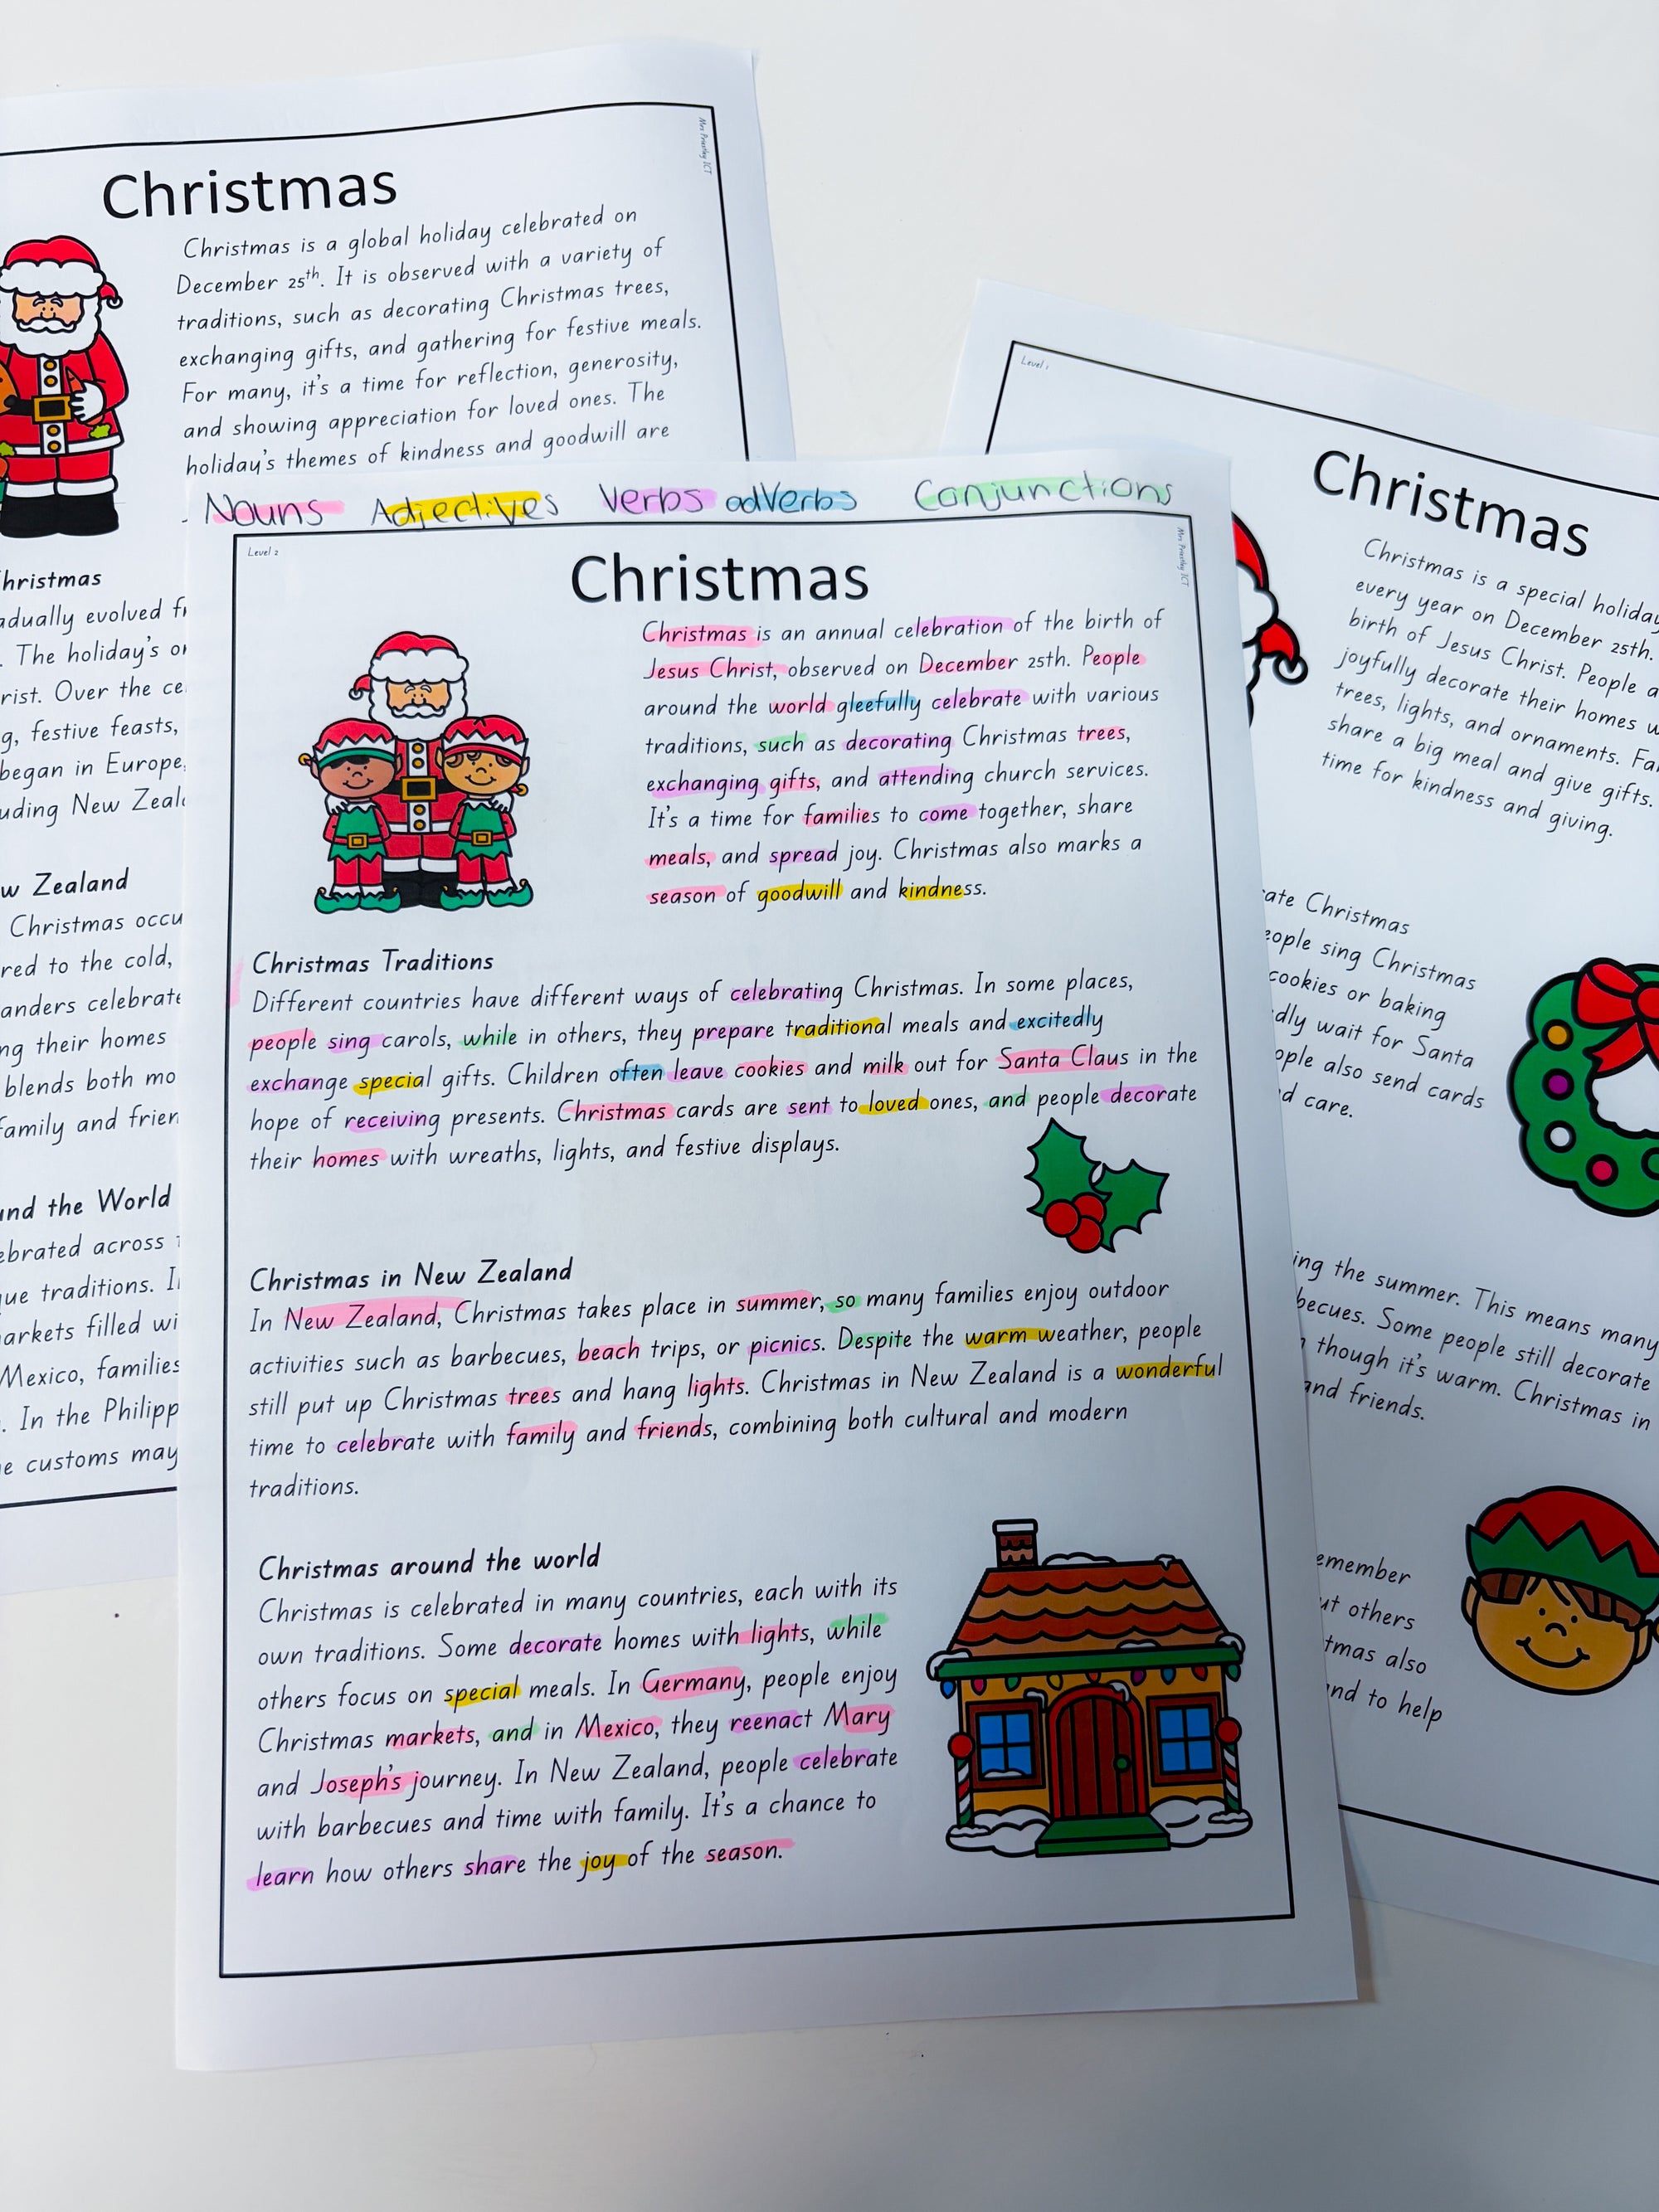 Mrs Priestley ICT
Christmas
Christmas is a global holiday celebrated on
December 25th. It is observed with a variety of
traditions, such as decorating Christmas trees,
exchanging gifts, and gathering for festive meals.
For many, it's a time for reflection, generosity,
and showing appreciation for loved ones. The
holiday's themes of kindness and goodwill are
hristmas
adually evolved
. The holiday's
rist. Over the
g, festive feasts,
began in Europe,
uding New
w Zealand
Christmas
red to the cold,
anders
ng their homes
blends both
family and
und the World
ebrated across
ue traditions.
arkets filled
Mexico, families
. In the
e customs may
Nouns Adjectives Verbs adverbs Conjunctions
Level 2
Mrs Priestley ICT
Christmas
Christmas is an annual celebration of the birth of
Jesus Christ, observed on December 25th. People
around the world gleefully celebrate with various
traditions, such as decorating Christmas trees,
exchanging gifts, and attending church services.
It's a time for families to come together, share
meals, and spread joy. Christmas also marks a
season of goodwill and kindness.
Christmas Traditions
Different countries have different ways of celebrating Christmas. In some places,
people sing carols, while in others, they prepare traditional meals and excitedly
exchange special gifts. Children often leave cookies and milk out for Santa Claus in the
hope of receiving presents. Christmas cards are sent to loved ones, and people decorate
their homes with wreaths, lights, and festive displays.
Christmas in New Zealand
In New Zealand, Christmas takes place in summer, so many families enjoy outdoor
activities such as barbecues, beach trips, or picnics. Despite the warm weather, people
still put up Christmas trees and hang lights. Christmas in New Zealand is a wonderful
time to celebrate with family and friends, combining both cultural and modern
traditions.
Christmas around the world
Christmas is celebrated in many countries, each with its
own traditions. Some decorate homes with lights, while
others focus on special meals. In Germany, people enjoy
Christmas markets, and in Mexico, they reenact Mary
and Joseph's journey. In New Zealand, people celebrate
with barbecues and time with family. It's a chance to
learn how others share the joy of the season.
Level 1
Christmas
Christmas is a special holiday
every year on December 25th.
birth of Jesus Christ. People
joyfully decorate their homes
trees, lights, and ornaments.
share a big meal and give gifts.
time for kindness and giving.
ate Christmas
eople sing Christmas
cookies or baking
dly wait for Santa
ople also send cards
d care.
ing the summer. This means many
becues. Some people still decorate
though it's warm. Christmas in
and friends.
emember
ut others
tmas also
and to help